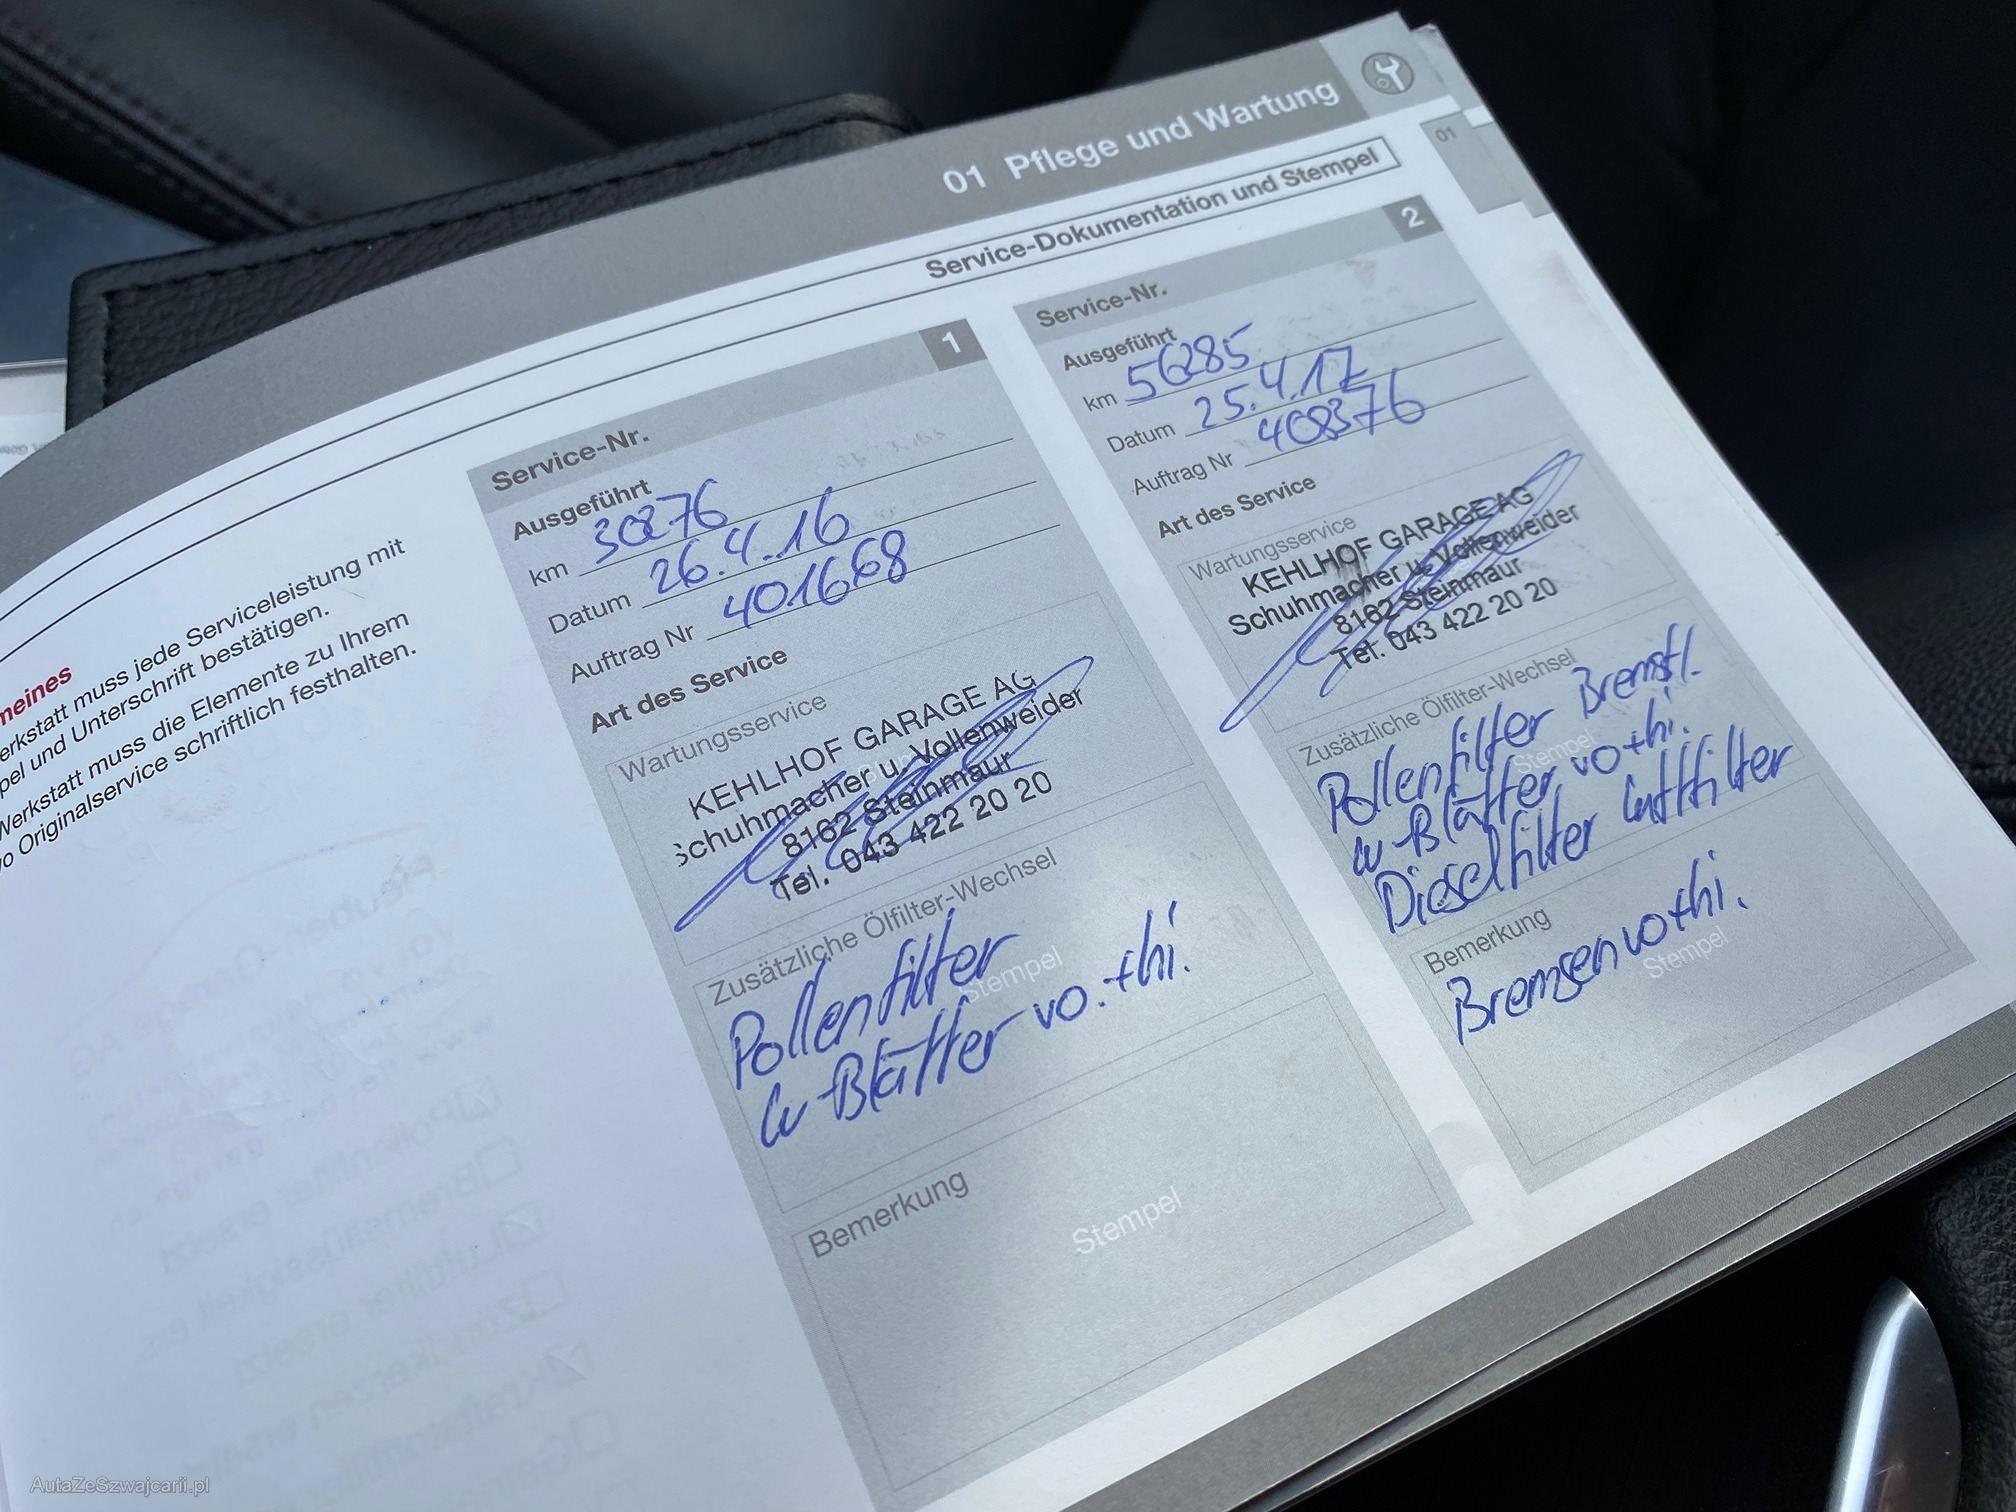 01 Pflege und Wartung
01
Service-Dokumentation und Stempel
meines
erkstatt muss jede Serviceleistung mit
pel und Unterschrift bestätigen.
Werkstatt muss die Elemente zu Ihrem
vo Originalservice schriftlich festhalten.
Service-Nr. 1
Ausgeführt
km 30276
Datum 26.4.16
Auftrag Nr 401668
Art des Service
Wartungsservice
KEHLHOF GARAGE AG
Schuhmacher u. Vollenweider
8162 Steinmaur
Tel. 043 422 20 20
Zusätzliche Ölfilter-Wechsel
Pollenfilter
Stempel
W-Blätter vo.+hi.
Bemerkung
Stempel
Service-Nr. 2
Ausgeführt
km 56285
Datum 25.4.17
Auftrag Nr 408376
Art des Service
Wartungsservice
KEHLHOF GARAGE AG
Schuhmacher u. Vollenweider
8162 Steinmaur
Tel. 043 422 20 20
Zusätzliche Ölfilter-Wechsel
Pollenfilter Bremsfl.
Stempel
W-Blätter vo+hi.
Dieselfilter Luftfilter
Bemerkung
Bremsen vo+hi.
Stempel
AutaZeSzwajcarii.pl